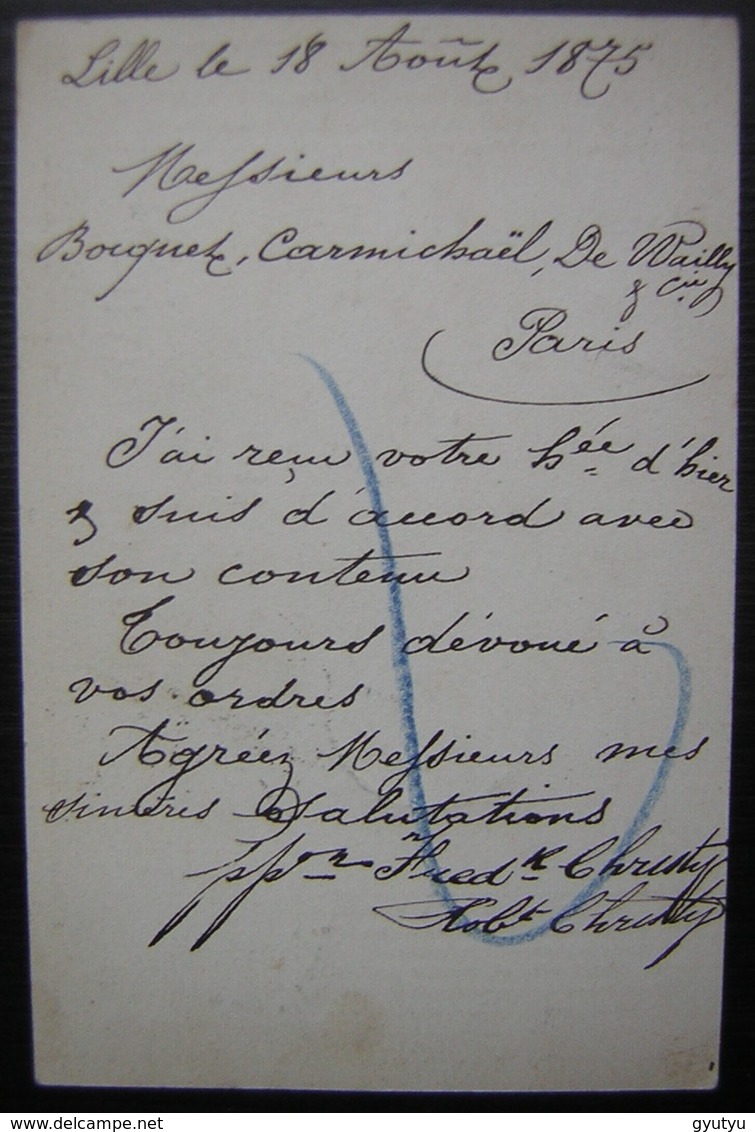 Lille le 18 Août 1875
Messieurs
Bocquet, Carmichaël, De Wailly
& Cie
Paris
J'ai reçu votre h.ée d'hier
& suis d'accord avec
son contenu
Toujours dévoué à
vos ordres
Agréez Messieurs mes
sincères Salutations
pp.on Fred.k Christy
Rob.t Christy
gyutyu